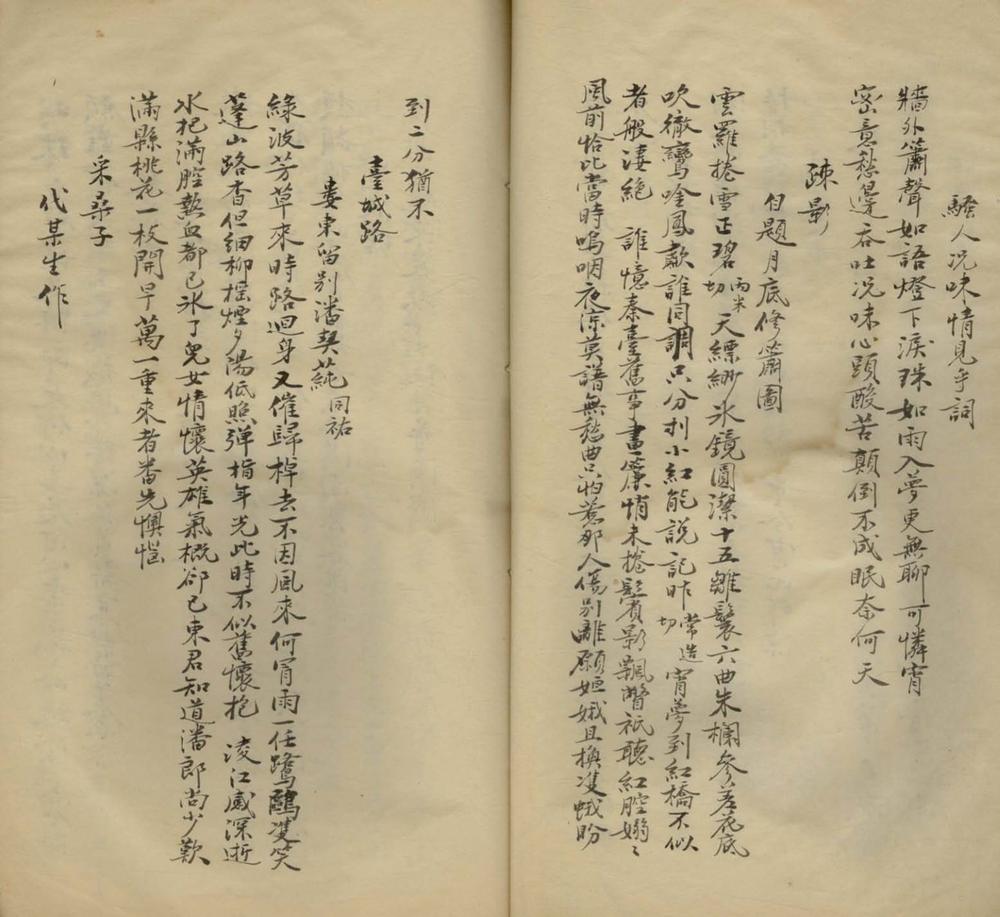 騷人况味情見乎詞
牆外簫聲如語燈下淚珠如雨入夢更無聊可憐宵
密意愁邊吞吐况味心頭酸苦顛倒不成眠奈何天
疎影
自題月底修簫圖
雲羅捲雪正碧丙米切天縹緲氷鏡圓潔十五雛鬟六曲朱欄參差花底
吹徹鸞唫鳳歗誰同調只分付小紅能說記昨常造切宵夢到紅橋不似
者般淒絶 誰憶秦臺舊事畫簾悄未捲鬢影飄瞥祇聽紅腔嫋〻
風前恰比當時嗚咽夜涼莫譜無愁曲只怕惹那人傷别離願姮娥且換雙蛾盼
到二分猶不
臺城路
婁東留别潘契蒓同祐
綠波芳草來時路迴身又催歸棹去不因風來何冒雨一任鷺鷗雙笑
蓬山路杳但細柳搖煙夕陽低照彈指年光此時不似舊懷抱 淩江感深逝
水把滿腔熱血都已氷了兒女情懷英雄氣概郤已東君知道潘郎尚少歎
滿縣桃花一枝開早萬一重來者番先懊惱
采桑子
代某生作